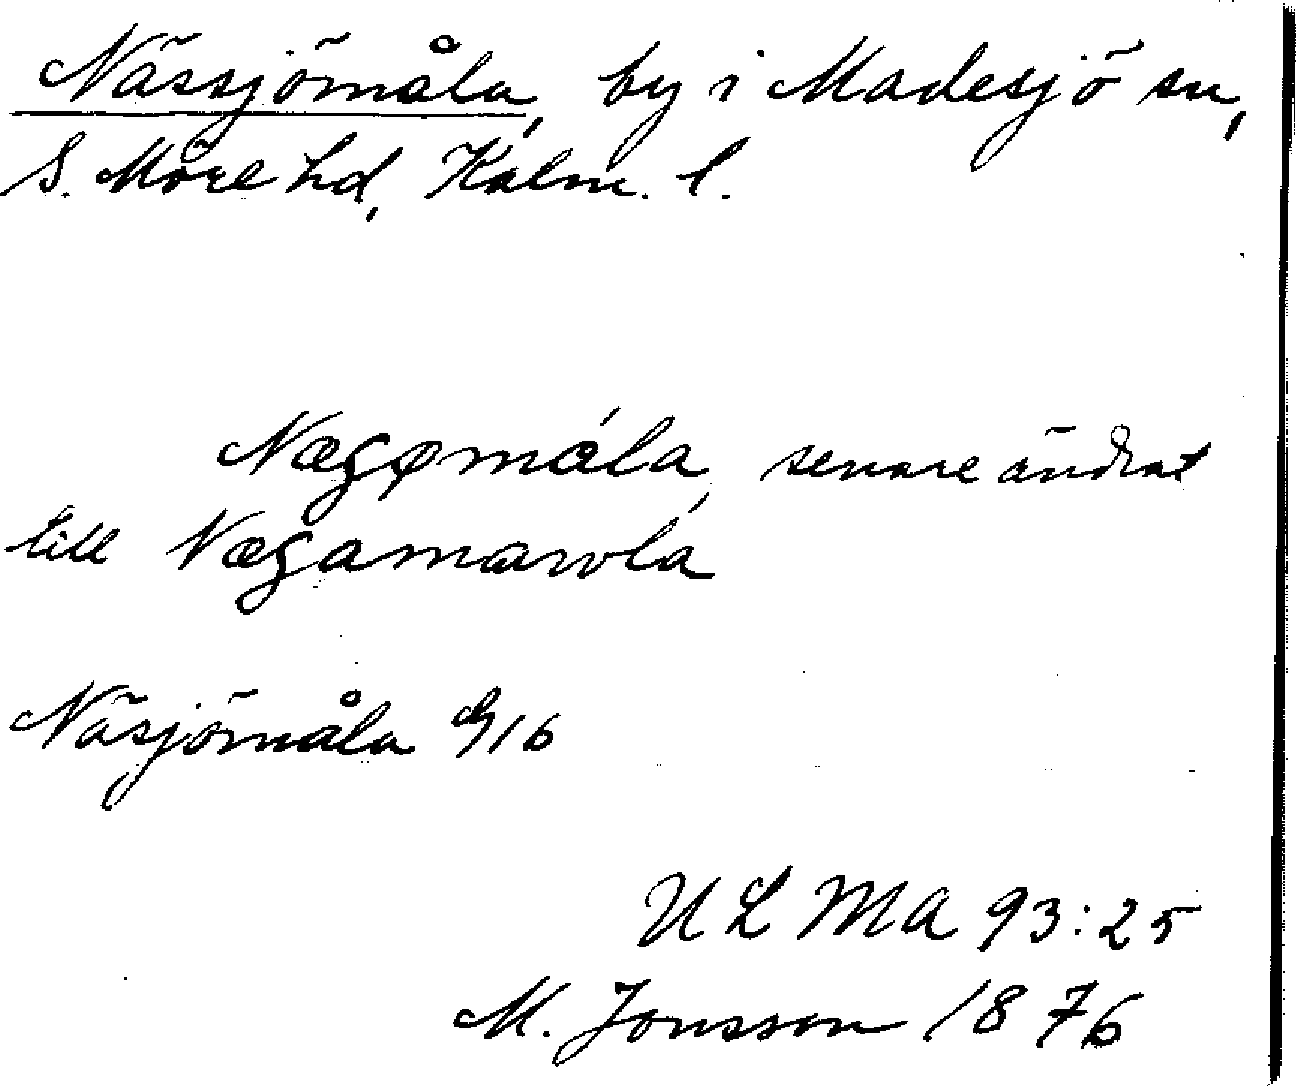 Nässjömåla, by i Madesjö sn,
S. Möre hd, Kalm. l.
Nægømåla, senare ändrat
till Nægamawla
Näsjömåla G 16
ULMA 93:25
M. Jonsson 1876